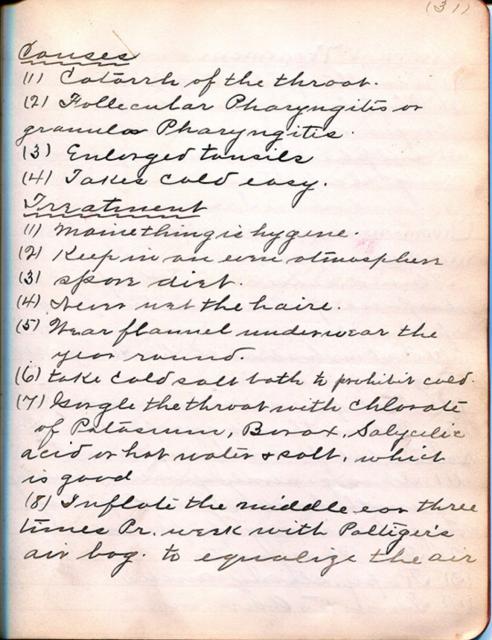 (31)
Causes
(1) Catarrh of the throat.
(2) Follecular Pharyngitis or
granular Pharyngitis.
(3) Enlarged tonsils
(4) Takes cold easy.
Treatment
(1) Maine thing is hygene.
(2) Keep in an even atmosphere
(3) spare diet.
(4) Never wet the haire.
(5) Wear flannel underwear the
year round.
(6) take cold salt bath to prohibit cold.
(7) Gorgle the throat with chlorate
of Potassium, Borax, Salycilic
acid or hot water & salt, which
is good
(8) Inflate the middle ear three
times Pr. week with Poltiger's
air bag. to equalize the air